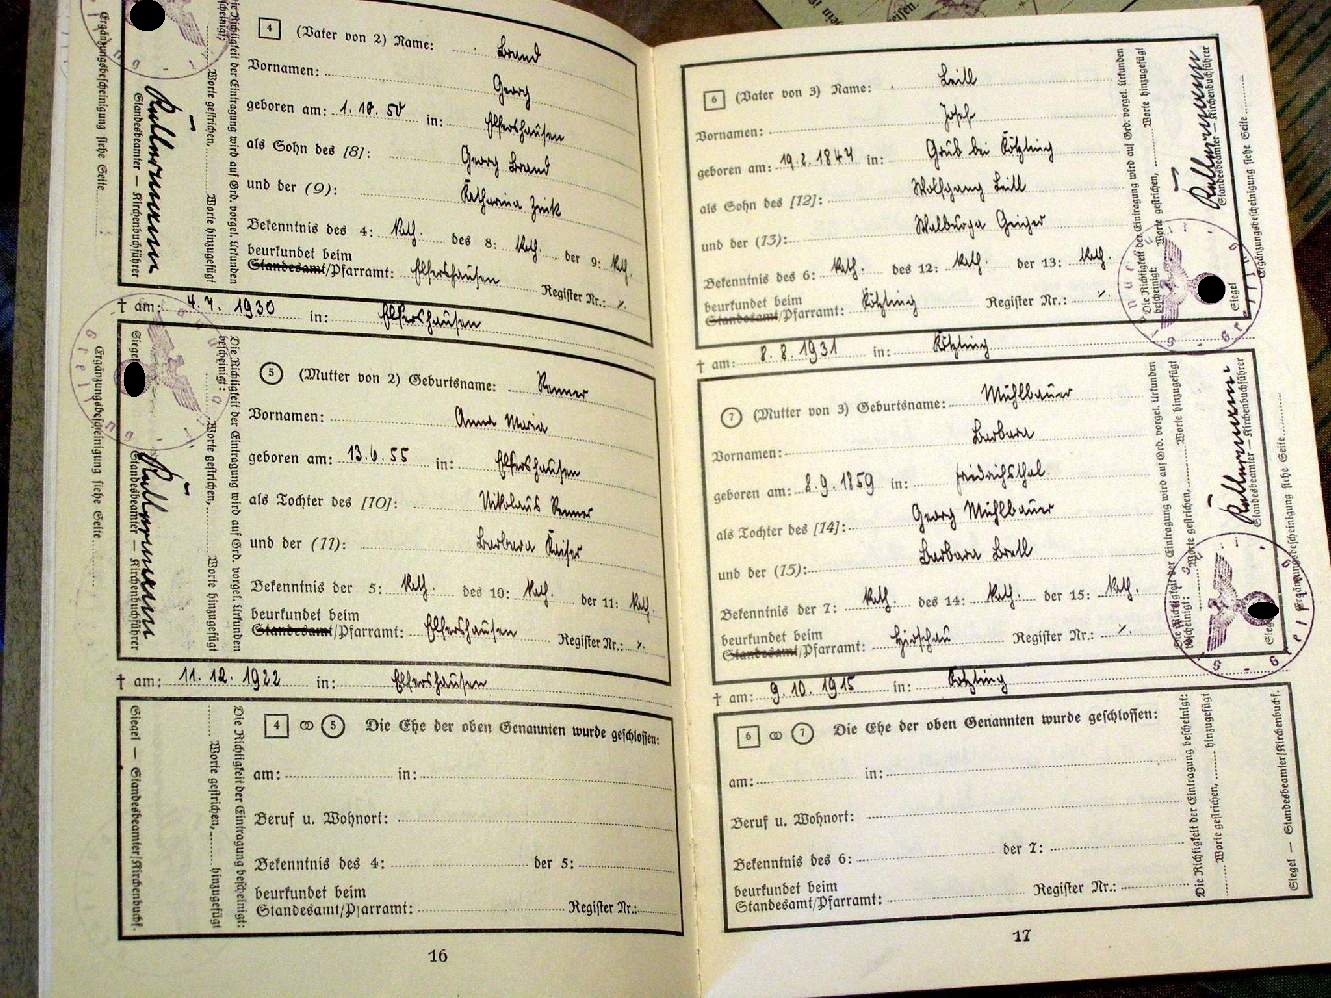 4 (Vater von 2) Name: Brand
Vornamen: Georg
geboren am: 1. 10. 50 in: Elfershausen
als Sohn des [8]: Georg Brand
und der (9): Katharina Zink
Bekenntnis des 4: kath. des 8: kath. der 9: kath.
beurkundet beim
Standesamt/Pfarramt: Elfershausen Register Nr.:
† am: 4. 7. 1930 in: Elfershausen
5 (Mutter von 2) Geburtsname: Renner
Vornamen: Anna Maria
geboren am: 13. 6. 55 in: Elfershausen
als Tochter des [10]: Nikolaus Renner
und der (11): Barbara Kaiser
Bekenntnis der 5: kath. des 10: kath. der 11: kath.
beurkundet beim
Standesamt/Pfarramt: Elfershausen Register Nr.:
† am: 11. 12. 1922 in: Elfershausen
4 ∞ 5 Die Ehe der oben Genannten wurde geschlossen:
am: in:
Beruf u. Wohnort:
Bekenntnis des 4: der 5:
beurkundet beim
Standesamt/Pfarramt: Register Nr.:
Ergänzungsbescheinigung siehe Seite
Standesbeamter — Kirchenbuchführer
Worte gestrichen, Worte hinzugefügt
Die Richtigkeit der Eintragung wird auf Grd. vorgel. Urkunden
bescheinigt:
Ergänzungsbescheinigung siehe Seite
Siegel
Standesbeamter — Kirchenbuchführer
Worte gestrichen, Worte hinzugefügt
Die Richtigkeit der Eintragung wird auf Grd. vorgel. Urkunden
bescheinigt:
Siegel — Standesbeamter/Kirchenbuchf.
Worte gestrichen, hinzugefügt
Die Richtigkeit der Eintragung bescheinigt:
16
6 (Vater von 3) Name: Leitl
Vornamen: Josef
geboren am: 19. 2. 1844 in: Grub bei Kötzting
als Sohn des [12]: Wolfgang Leitl
und der (13): Walburga Geiger
Bekenntnis des 6: kath. des 12: kath. der 13: kath.
beurkundet beim
Standesamt/Pfarramt: Kötzting Register Nr.:
† am: 8. 8. 1931 in: Kötzting
7 (Mutter von 3) Geburtsname: Mühlbauer
Vornamen: Barbara
geboren am: 2. 9. 1859 in: Friedrichsthal
als Tochter des [14]: Georg Mühlbauer
und der (15): Barbara Bretl
Bekenntnis der 7: kath. des 14: kath. der 15: kath.
beurkundet beim
Standesamt/Pfarramt: Hirschau Register Nr.:
† am: 9. 10. 1915 in: Kötzting
6 ∞ 7 Die Ehe der oben Genannten wurde geschlossen:
am: in:
Beruf u. Wohnort:
Bekenntnis des 6: der 7:
beurkundet beim
Standesamt/Pfarramt: Register Nr.:
Die Richtigkeit der Eintragung wird auf Grd. vorgel. Urkunden
bescheinigt: Worte gestrichen, Worte hinzugefügt
Standesbeamter — Kirchenbuchführer
Siegel
Ergänzungsbescheinigung siehe Seite
Die Richtigkeit der Eintragung wird auf Grd. vorgel. Urkunden
bescheinigt: Worte gestrichen, Worte hinzugefügt
Standesbeamter — Kirchenbuchführer
Ergänzungsbescheinigung siehe Seite
Die Richtigkeit der Eintragung bescheinigt:
Worte gestrichen, hinzugefügt
Siegel — Standesbeamter/Kirchenbuchf.
17